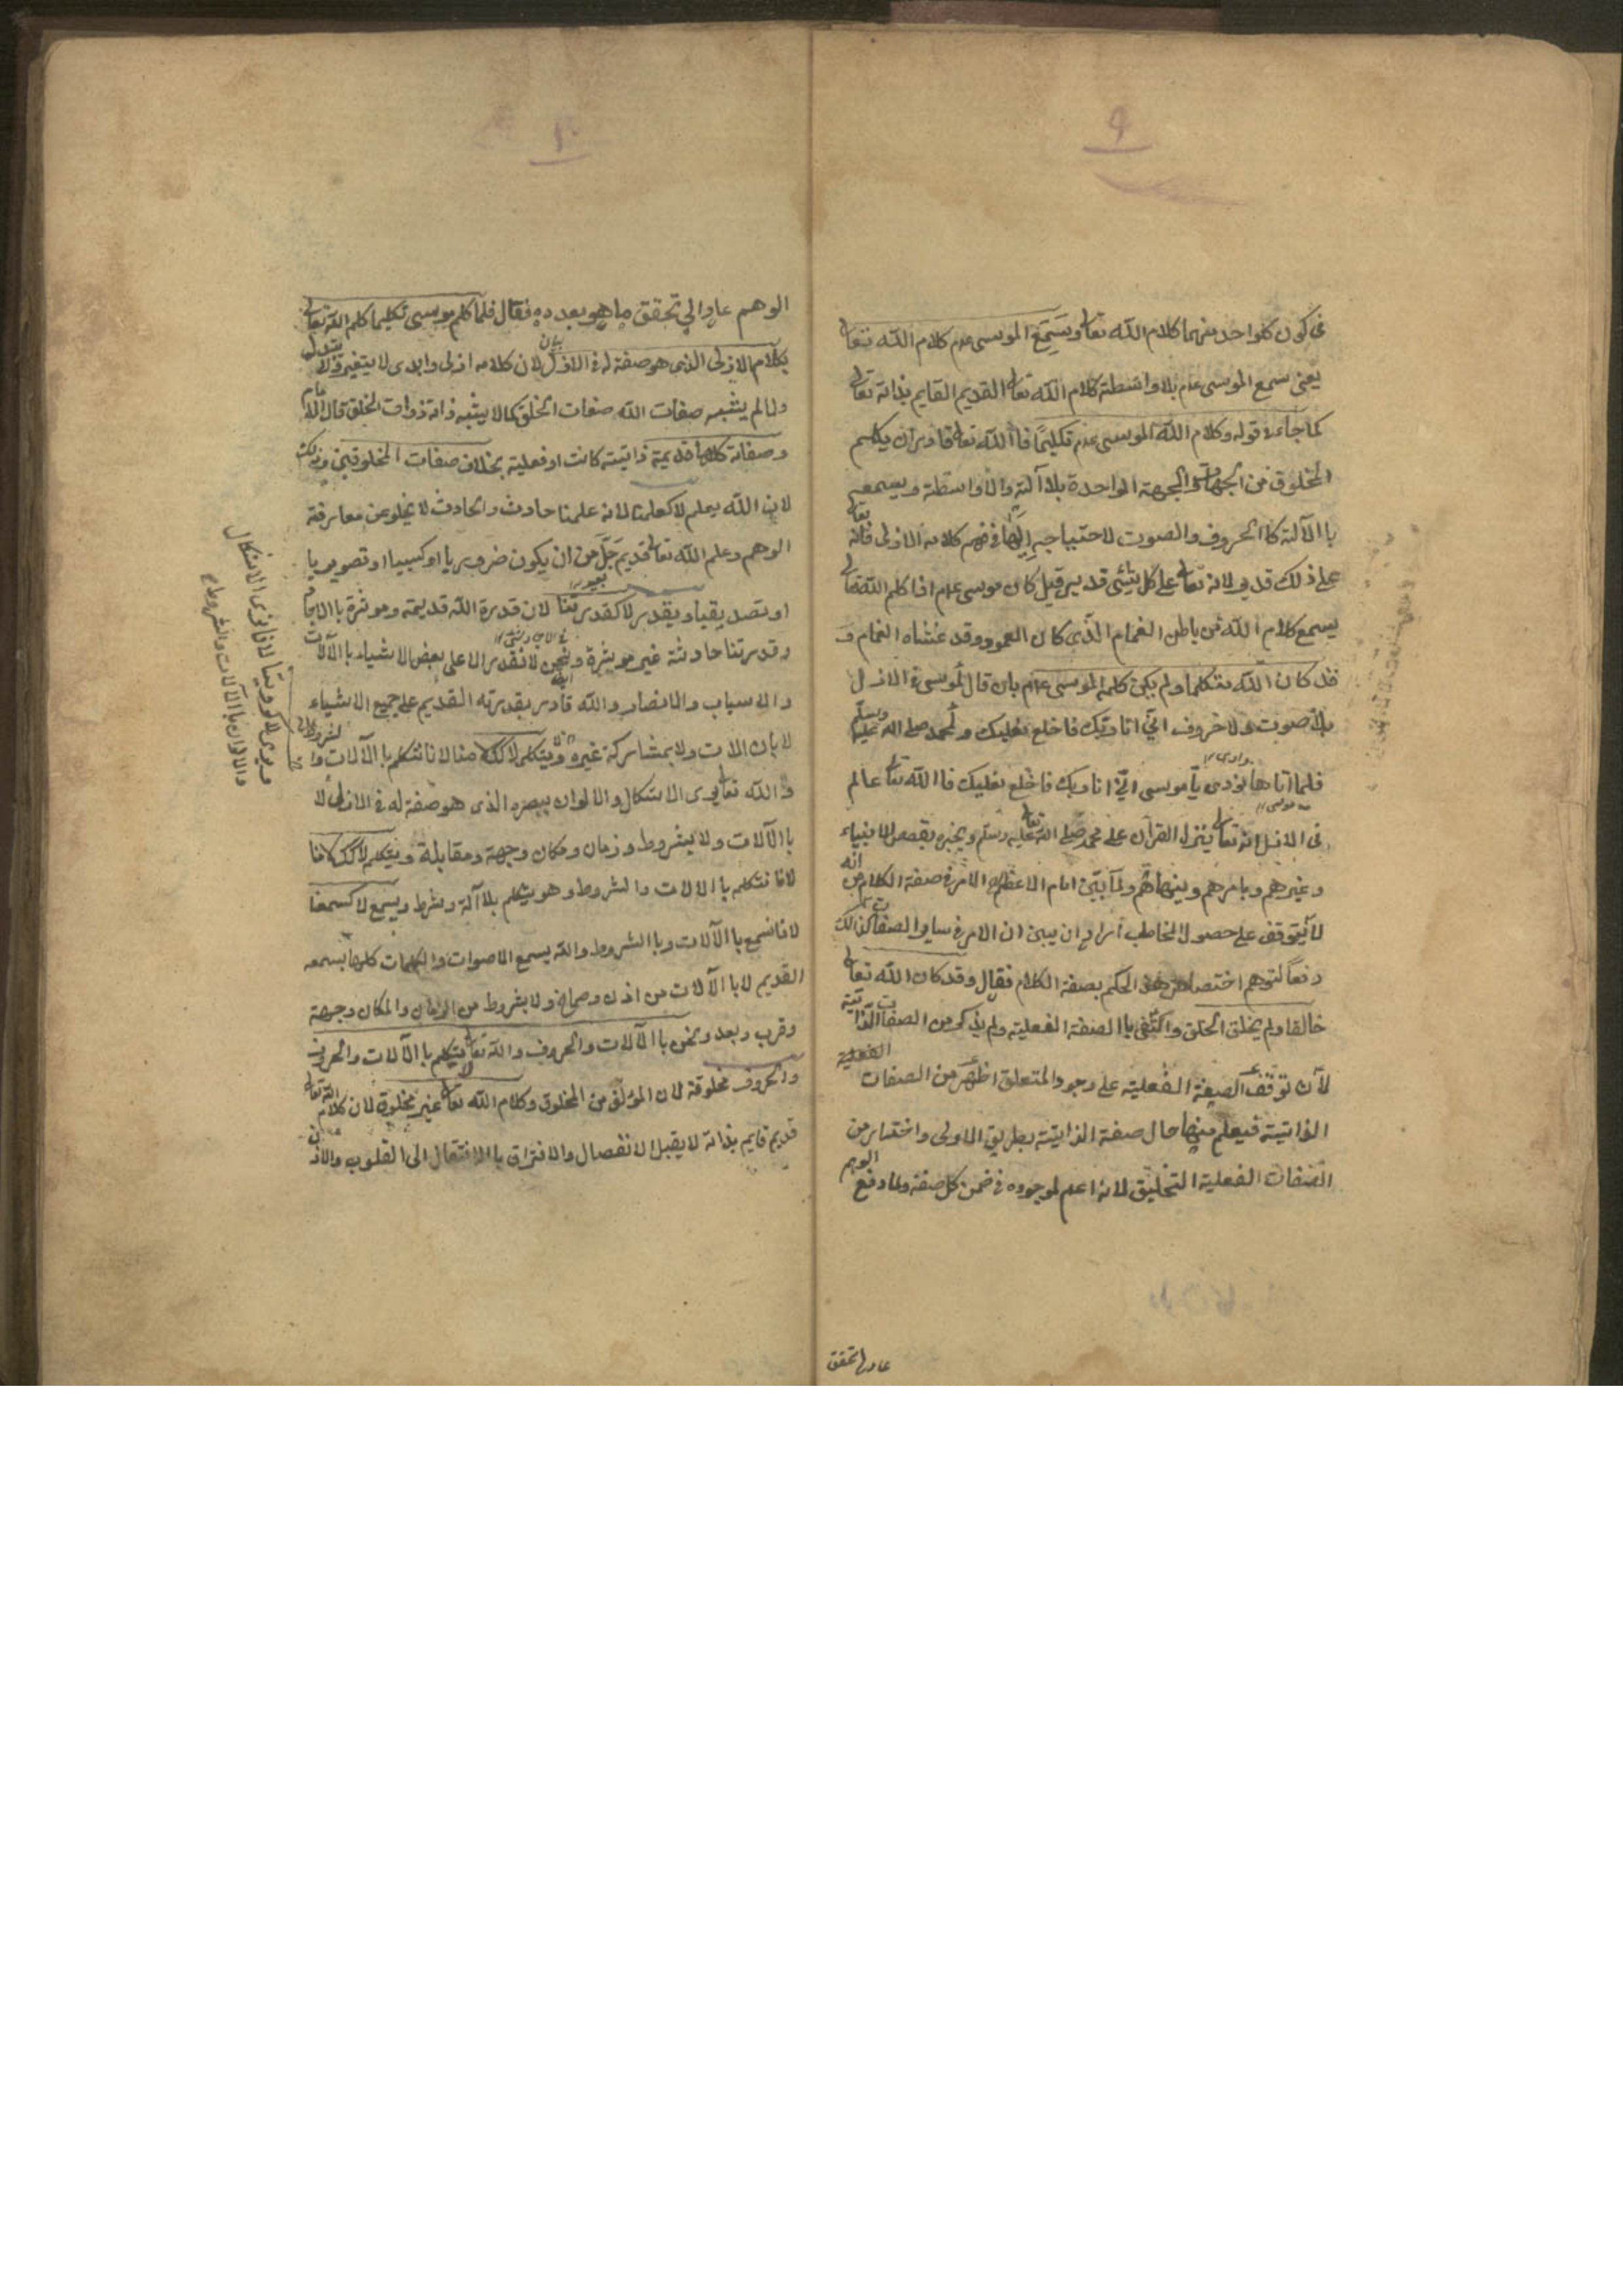 ٩
فى كون كلواحد منهما كلام الله تعالى ويسمع الموسى عم كلام الله تعالى
يعنى سمع الموسى عم بلا واسطة كلام الله تعالى القديم القايم بذاته تعالى
كما جاء فى قوله وكلام الله الموسى عم تكليمًا فا الله تعالى قادر ان يكلم
المخلوق من الجهات والجهة الواحدة بلا آلة ولا واسطة ويسمعه
با الآلة كا الحروف والصوت لاحتياجه اليها فى فهم كلامه الازلى فانه تعالى
على ذلك قدير لانه تعالى على كل شئى قدير قيل كان موسى عم اذا كلم الله تعالى
يسمع كلام الله من باطن الغمام الذى كان العمود وقد غشاه الغمام و
قد كان الله متكلما ولم يكن كلمه الموسى عم بان قال لموسى فى الازل
بلا صوت ولا حروف انى انا ربك فاخلع نعليك ولمحمد صلى الله عليه وسلم
فلما اتاها نودى يا موسى انى انا ربك فاخلع نعليك فا الله تعالى عالم
فى الازل انه تعالى ينزل القرآن على محمد صلى الله تعالى عليه وسلم ويخبره بقصص الانبياء
وغيرهم ويامرهم وينهاهم ولما بين امام الاعظم الامر فى صفة الكلام من انه
لا يتوقف على حصول المخاطب اراد ان يبين ان الامر فى ساير الصفات كذالك
دفعا لتوهم اختصاص هذا الحكم بصفة الكلام فقال وقد كان الله تعالى
خالقا ولم يخلق الخلق واكتفى با الصفة الفعلية ولم يذكر من الصفات الذاتية
لان توقف الصيغة الفعلية على وجود المتعلق اظهر من الصفات الفعلية
الذاتية فيعلم منها حال صفة الذاتية بطريق الاولى واختار من
الصفات الفعلية التخليق لانه اعم لوجوده فى ضمن كل صفة ولما دفع الوهم
عاد الى تحقق
١٠
الوهم عاد الى تحقق ما هو بعدده فقال فلما كلم موسى تكليما كلم الله تعالى
بكلام الازلى الذى هو صفة له فى الازل لان كلامه ازلى وابدى لا يتغير ولا يتبدل
ولما لم يشبه صفات الله صفات الخلق كما لا يشبه ذاته ذوات الخلق قال الامام
وصفاته كلها قديمة ذاتية كانت او فعلية بخلاف صفات المخلوقين وذلك
لان الله يعلم لا كعلمنا لانه علمنا حادث والحادث لا يخلو عن معارفة
الوهم وعلم الله تعالى قديم جل من ان يكون ضروريا او كسبيا او تصويريا
او تصديقيا ويقدر لا كقدرتنا لان قدرة الله قديمة وموثرة با الايجاد
وقدرتنا حادثة غير موثرة ونحن لا نقدر الا على بعض الاشياء با الآلات
والاسباب والانصار والله قادر بقدرته القديم على جميع الاشياء
لا بالالات ولا بمشاركة غيره ويتكلم لا ككلامنا لانا نتكلم با الآلات وا
والله تعالى يرى الاشكال والالوان ببصره الذى هو صفة له فى الازل لا
با الآلات ولا بشروط وزمان ومكان وجهة ومقابلة ويتكلم لا ككلامنا
لانا نتكلم با الالات والشروط وهو يتكلم بلا آلة وشرط ويسمع لا كسمعنا
لانا نسمع با الآلات وبا الشروط والله يسمع الاصوات والكلمات كلها بسمعه
القديم لا با الآلات من اذن وصماخ ولا بشروط من الزمان والمكان وجهة
وقرب وبعد ونحن با الآلات والحروف والله تعالى يتكلم لا با الآلات والحروف
والحروف مخلوقة لان المؤلف من المخلوق وكلام الله تعالى غير مخلوق لان كلام الله تعالى
قديم قايم بذاته لا يقبل الانفصال والافتراق با الانتقال الى القلوب والاذان
ويرى لا كرويتنا لانا نرى الاشكال
والالوان با الآلات والشروط